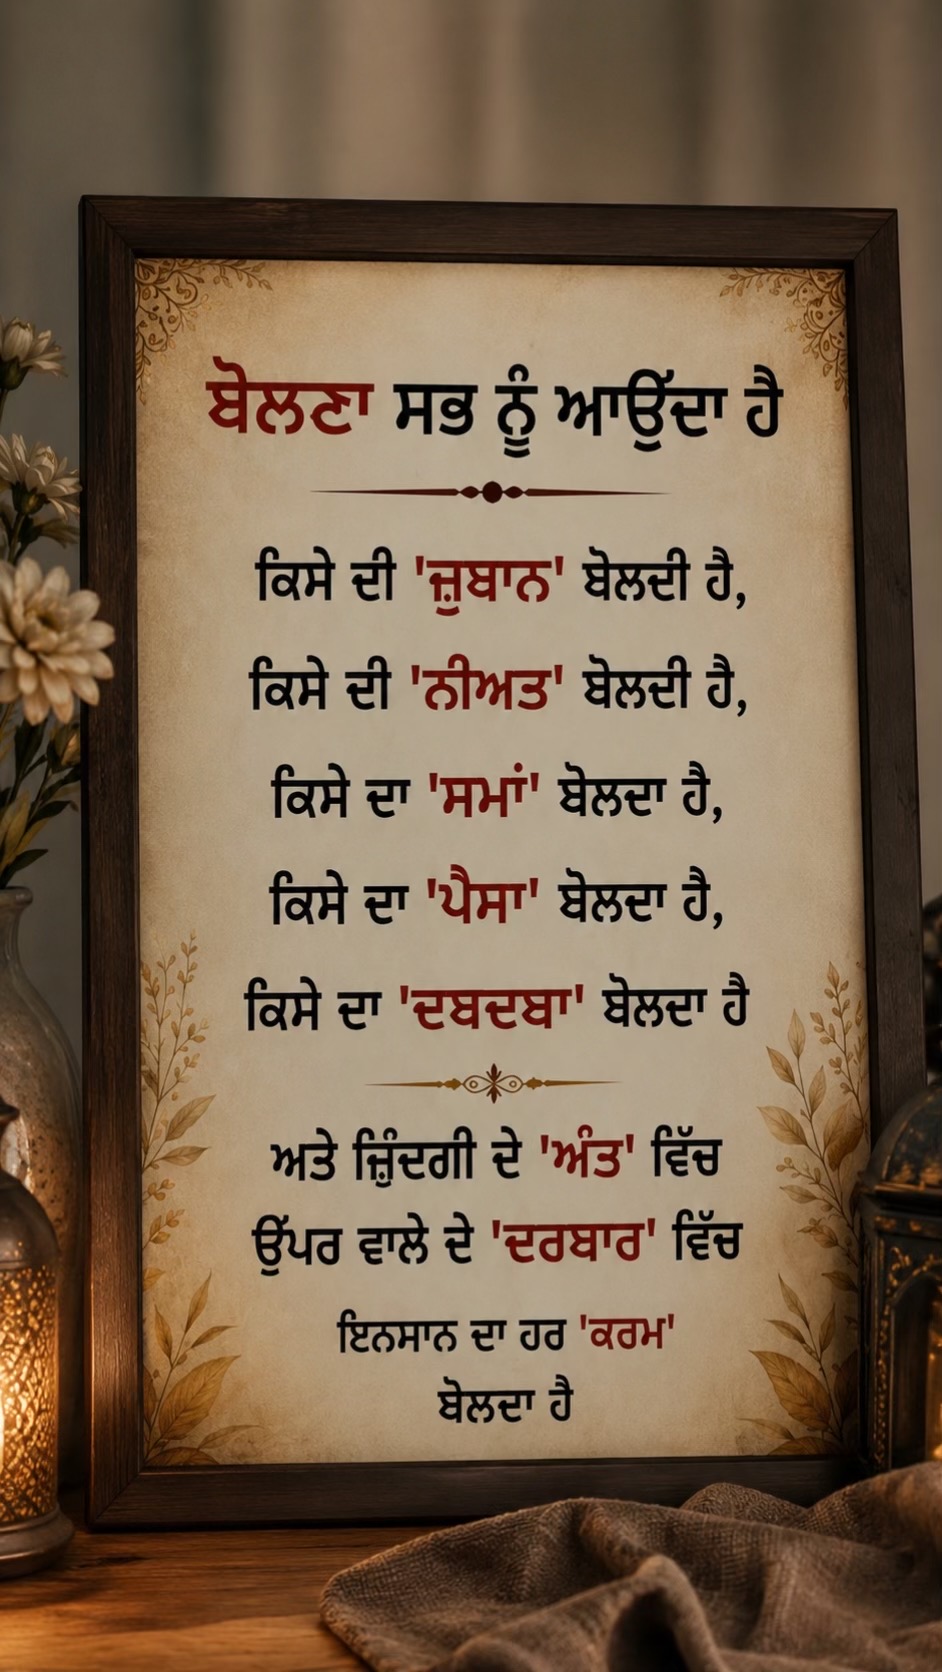 ਬੋਲਣਾ ਸਭ ਨੂੰ ਆਉਂਦਾ ਹੈ
ਕਿਸੇ ਦੀ 'ਜ਼ੁਬਾਨ' ਬੋਲਦੀ ਹੈ,
ਕਿਸੇ ਦੀ 'ਨੀਅਤ' ਬੋਲਦੀ ਹੈ,
ਕਿਸੇ ਦਾ 'ਸਮਾਂ' ਬੋਲਦਾ ਹੈ,
ਕਿਸੇ ਦਾ 'ਪੈਸਾ' ਬੋਲਦਾ ਹੈ,
ਕਿਸੇ ਦਾ 'ਦਬਦਬਾ' ਬੋਲਦਾ ਹੈ
ਅਤੇ ਜ਼ਿੰਦਗੀ ਦੇ 'ਅੰਤ' ਵਿੱਚ
ਉੱਪਰ ਵਾਲੇ ਦੇ 'ਦਰਬਾਰ' ਵਿੱਚ
ਇਨਸਾਨ ਦਾ ਹਰ 'ਕਰਮ'
ਬੋਲਦਾ ਹੈ